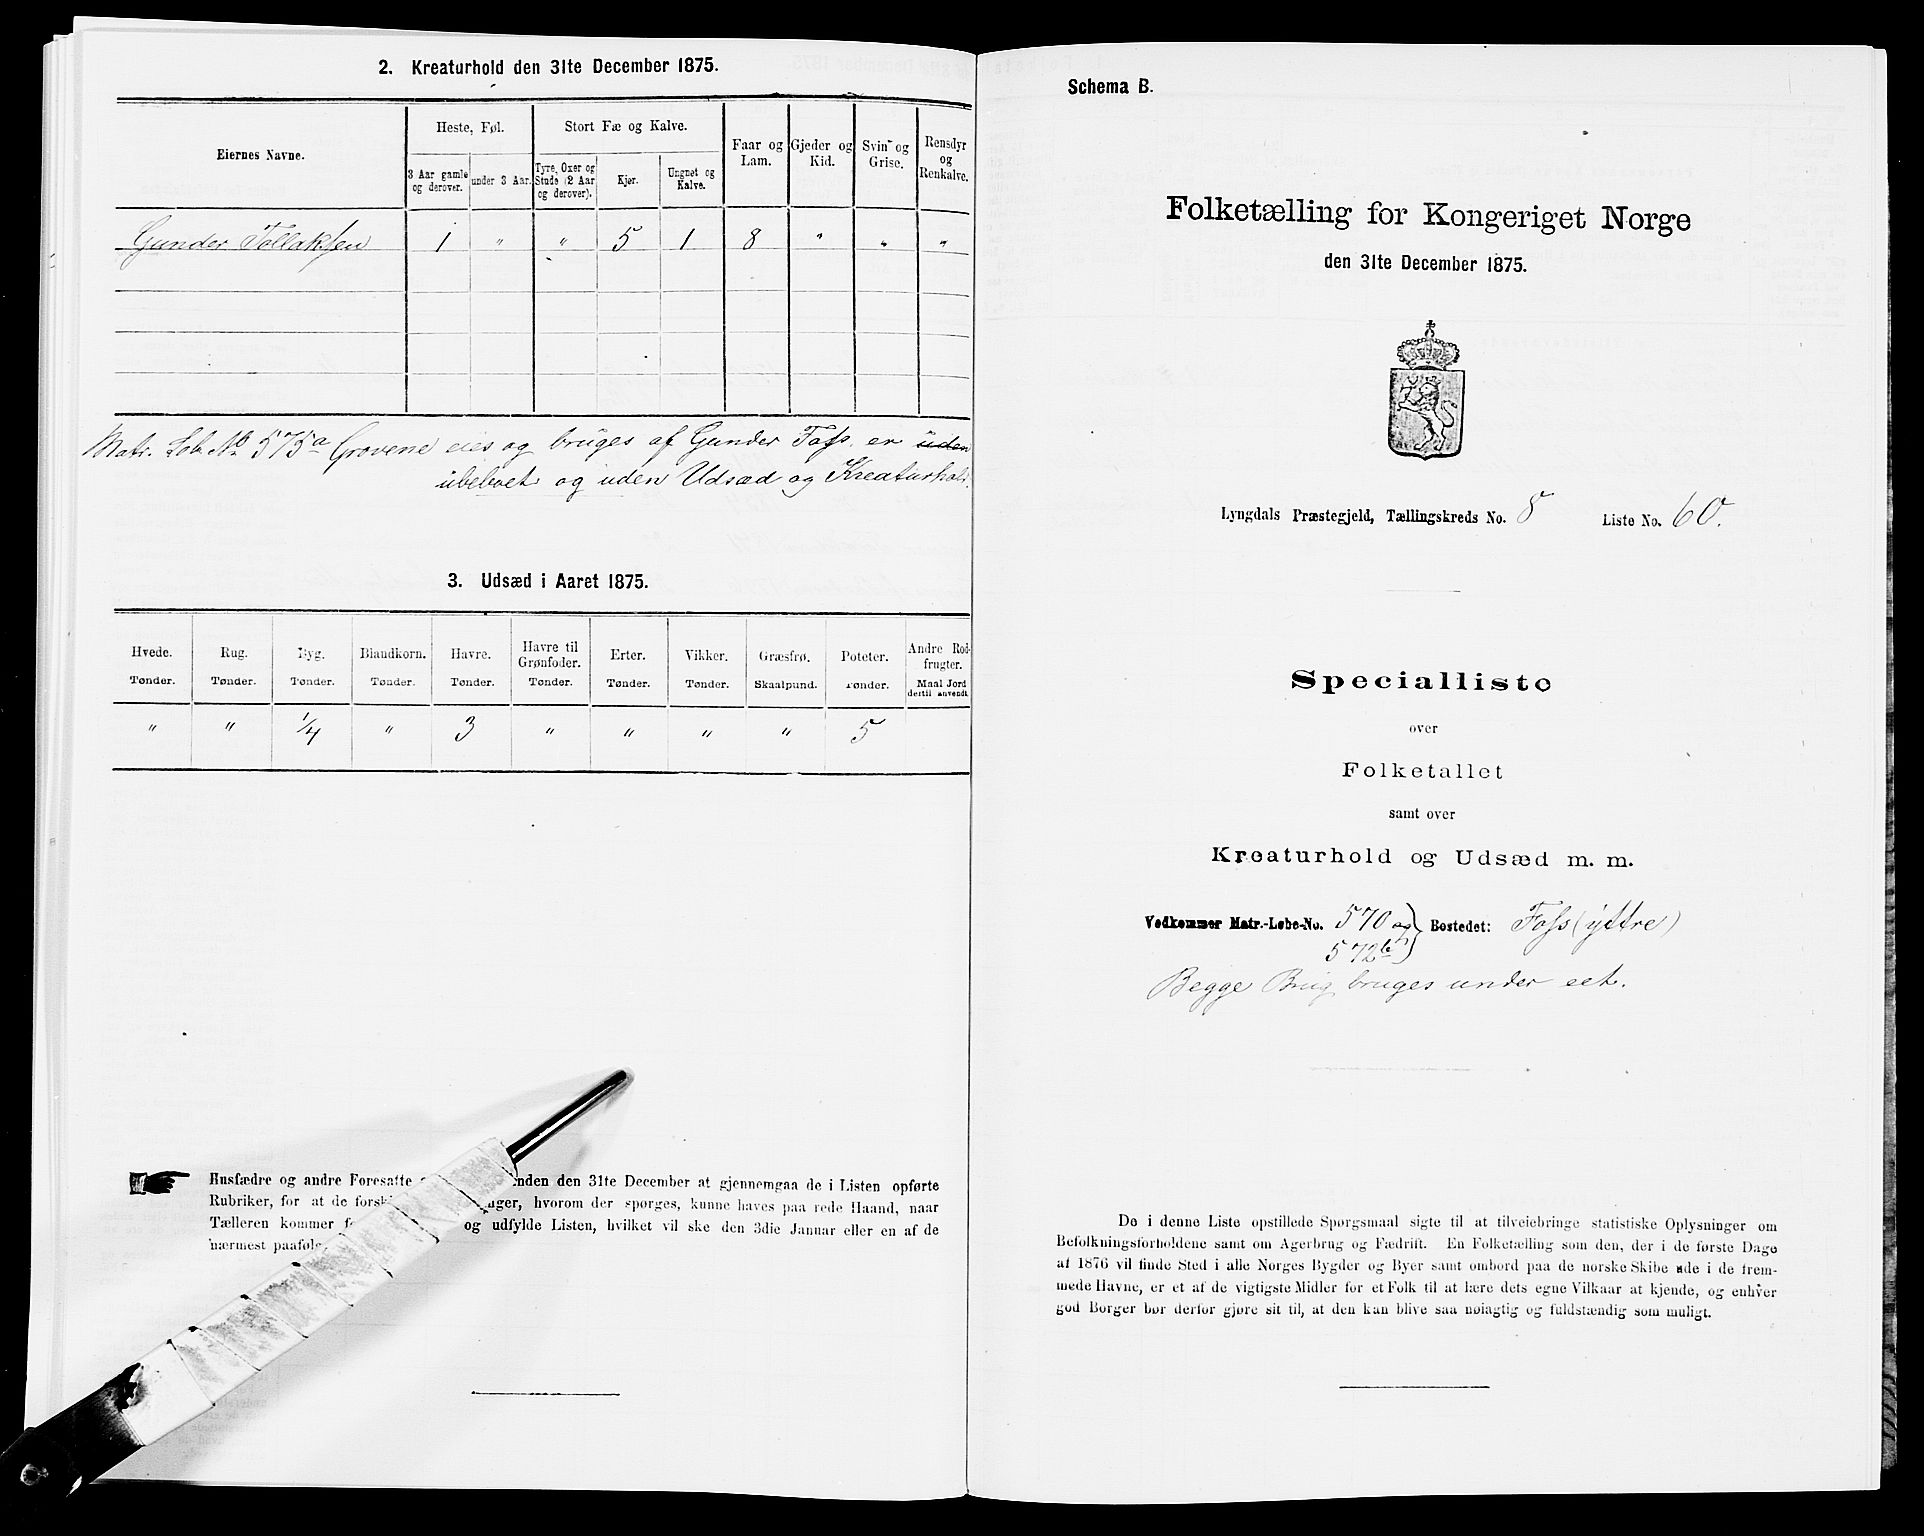 2. Kreaturhold den 31te December 1875.
Eiernes Navne.
Heste, Føl.
Stort Fæ og Kalve.
Faar og Lam.
Gjeder og Kid.
Svin og Grise.
Rensdyr og Renkalve.
3 Aar gamle og derover.
under 3 Aar.
Tyre, Oxer og Stude (2 Aar og derover).
Kjør.
Ungnet og Kalve.
Gunder Tollaksen 1 " " 5 1 8 " " "
Matr. Lob. No 575a Grovene eies og bruges af Gunder Foss. er uden
ubeboet og uden Udsæd og Kreaturhold.
3. Udsæd i Aaret 1875.
Hvede. Rug. Byg. Blandkorn. Havre. Havre til Grønfoder. Erter. Vikker. Græsfrø. Poteter. Andre Rodfrugter.
Tønder. Tønder. Tønder. Tønder. Tønder. Tønder. Tønder. Tønder. Skaalpund. Tønder. Maal Jord dertil anvendt.
" " 1/4 " 3 " " " " 5
Husfædre og andre Foresatte enden den 31te December at gjennemgaa de i Listen opførte
Rubriker, for at de nger, hvorom der spørges, kunne haves paa rede Haand, naar
Tælleren kommer og udfylde Listen, hvilket vil ske den 3die Januar eller en af de
nærmest
Schema B.
Folketælling for Kongeriget Norge
den 31te December 1875.
Lyngdals Præstegjeld, Tællingskreds No. 8 Liste No. 60.
Specialliste
over
Folketallet
samt over
Kreaturhold og Udsæd m. m.
Vedkommer Matr.-Løbe-No. 570 og 572b Bostedet: Foss (yttre)
Begge Brug bruges under eet.
De i denne Liste opstillede Spørgsmaal sigte til at tilveiebringe statistiske Oplysninger om
Befolkningsforholdene samt om Agerbrug og Fædrift. En Folketælling som den, der i de første Dage
af 1876 vil finde Sted i alle Norges Bygder og Byer samt ombord paa de norske Skibe ude i de frem-
mede Havne, er et af de vigtigste Midler for et Folk til at lære dets egne Vilkaar at kjende, og enhver
god Borger bør derfor gjøre sit til, at den kan blive saa nøiagtig og fuldstændig som muligt.